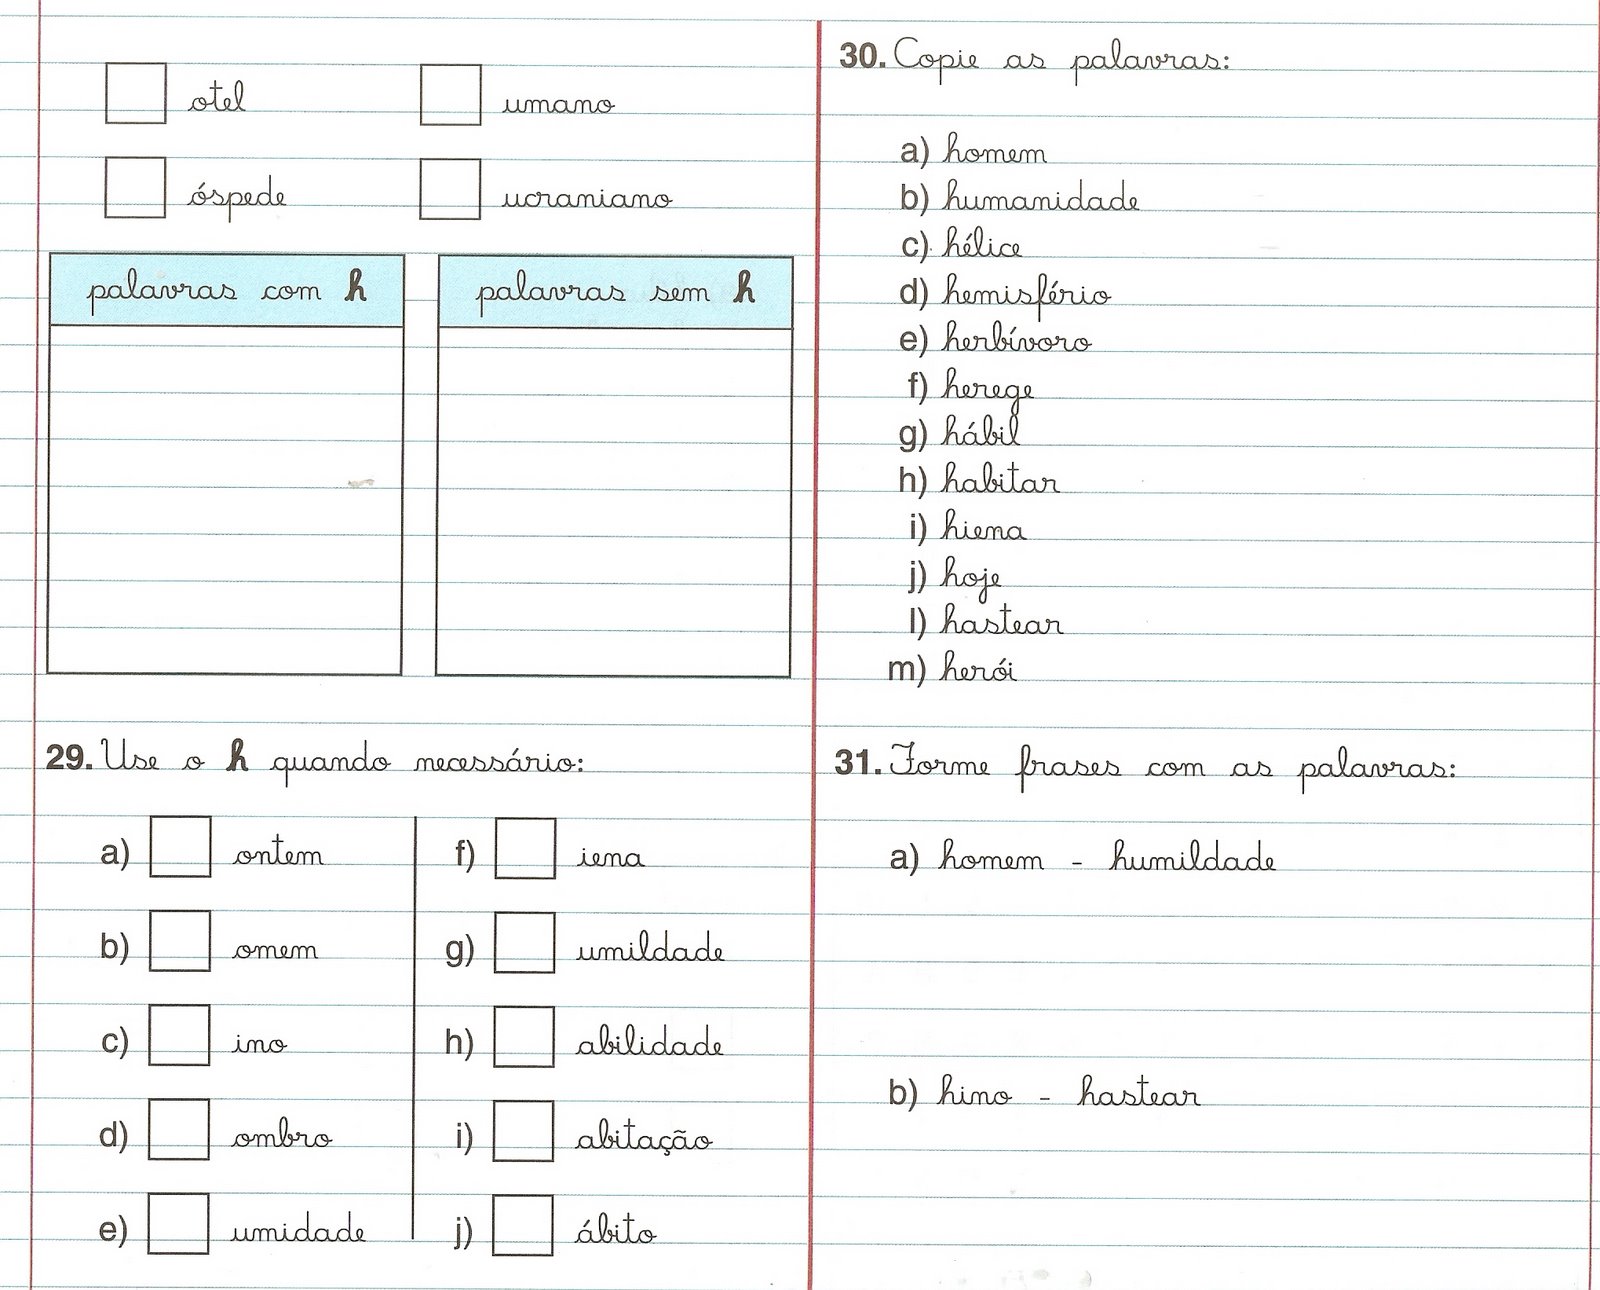 otel umano
óspede ucraniano
palavras com h palavras sem h
29. Use o h quando necessário:
a) ontem f) iena
b) omem g) umildade
c) ino h) abilidade
d) ombro i) abitação
e) umidade j) ábito
30. Copie as palavras:
a) homem
b) humanidade
c) hélice
d) hemisfério
e) herbívoro
f) herege
g) hábil
h) habitar
i) hiena
j) hoje
l) hastear
m) herói
31. Forme frases com as palavras:
a) homem - humildade
b) hino - hastear